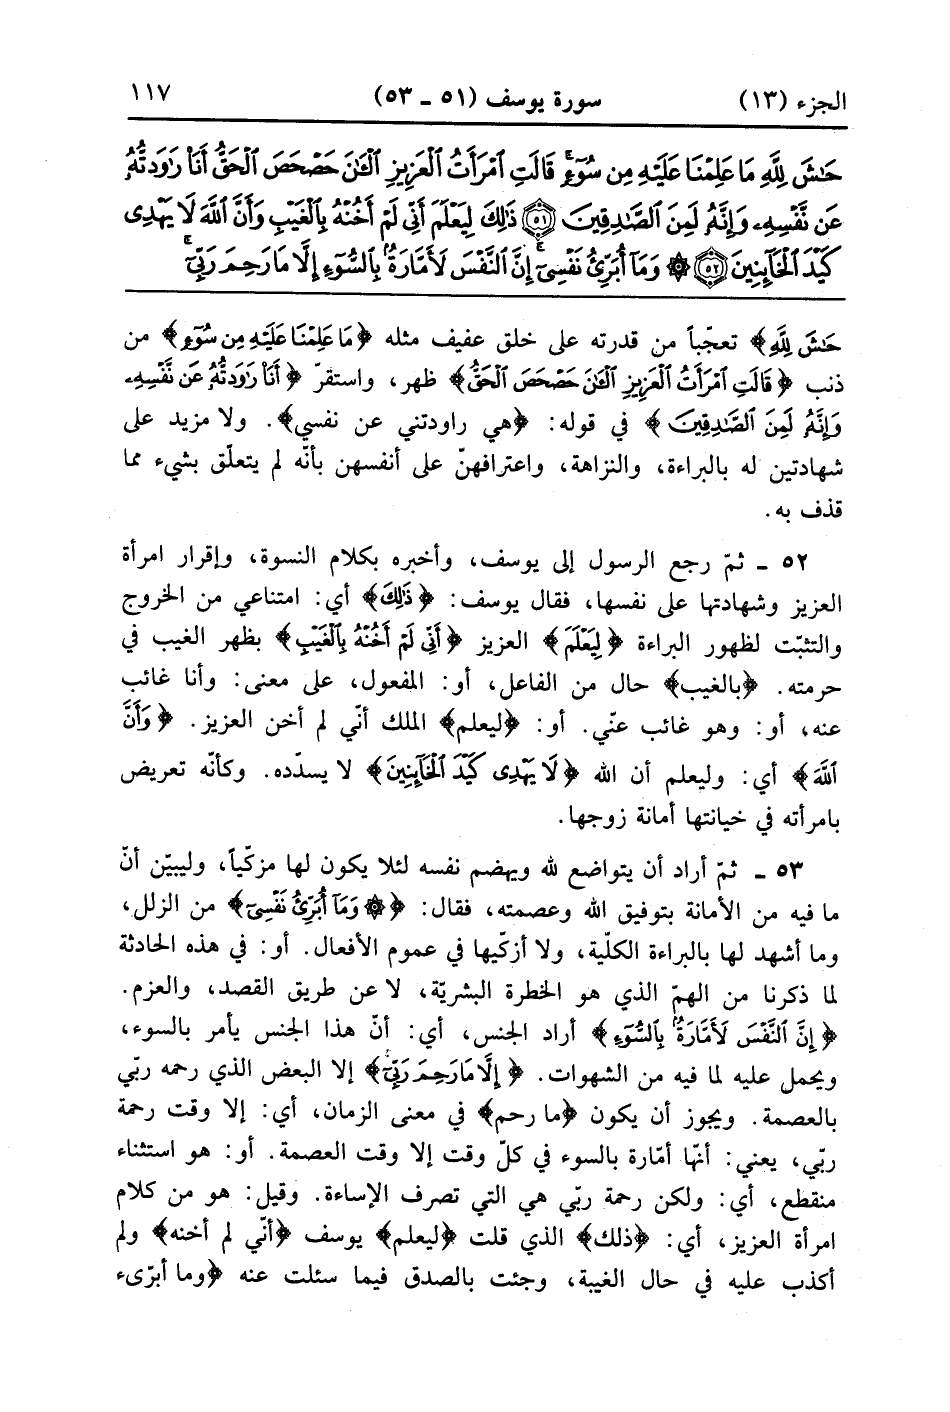 الجزء (١٣) سورة يوسف (٥١ ـ ٥٣) ١١٧
حَـٰشَ لِلَّهِ مَا عَلِمْنَا عَلَيْهِ مِن سُوٓءٍ ۚ قَالَتِ ٱمْرَأَتُ ٱلْعَزِيزِ ٱلْـَٔـٰنَ حَصْحَصَ ٱلْحَقُّ أَنَا۠ رَٰوَدتُّهُۥ
عَن نَّفْسِهِۦ وَإِنَّهُۥ لَمِنَ ٱلصَّـٰدِقِينَ ﴿٥١﴾ ذَٰلِكَ لِيَعْلَمَ أَنِّى لَمْ أَخُنْهُ بِٱلْغَيْبِ وَأَنَّ ٱللَّهَ لَا يَهْدِى
كَيْدَ ٱلْخَآئِنِينَ ﴿٥٢﴾ ۞ وَمَآ أُبَرِّئُ نَفْسِىٓ ۚ إِنَّ ٱلنَّفْسَ لَأَمَّارَةٌۢ بِٱلسُّوٓءِ إِلَّا مَا رَحِمَ رَبِّىٓ ۚ
حَـٰشَ لِلَّهِ﴾ تعجّباً من قدرته على خلق عفيف مثله ﴿مَا عَلِمْنَا عَلَيْهِ مِن سُوٓءٍ﴾ من
ذنب ﴿قَالَتِ ٱمْرَأَتُ ٱلْعَزِيزِ ٱلْـَٔـٰنَ حَصْحَصَ ٱلْحَقُّ﴾ ظهر، واستقرّ ﴿أَنَا۠ رَٰوَدتُّهُۥ عَن نَّفْسِهِۦ
وَإِنَّهُۥ لَمِنَ ٱلصَّـٰدِقِينَ﴾ في قوله: ﴿هي راودتني عن نفسي﴾. ولا مزيد على
شهادتين له بالبراءة، والنزاهة، واعترافهنّ على أنفسهن بأنّه لم يتعلّق بشيء مما
قذف به.
٥٢ ـ ثمّ رجع الرسول إلى يوسف، وأخبره بكلام النسوة، وإقرار امرأة
العزيز وشهادتها على نفسها، فقال يوسف: ﴿ذَٰلِكَ﴾ أي: امتناعي من الخروج
والتثبّت لظهور البراءة ﴿لِيَعْلَمَ﴾ العزيز ﴿أَنِّى لَمْ أَخُنْهُ بِٱلْغَيْبِ﴾ بظهر الغيب في
حرمته. ﴿بالغيب﴾ حال من الفاعل، أو: المفعول، على معنى: وأنا غائب
عنه، أو: وهو غائب عنّي. أو: ﴿ليعلم﴾ الملك أنّي لم أخن العزيز. ﴿وَأَنَّ
ٱللَّهَ﴾ أي: وليعلم أن الله ﴿لَا يَهْدِى كَيْدَ ٱلْخَآئِنِينَ﴾ لا يسدّده. وكأنّه تعريض
بامرأته في خيانتها أمانة زوجها.
٥٣ ـ ثمّ أراد أن يتواضع لله ويهضم نفسه لئلا يكون لها مزكّياً، وليبيّن أنّ
ما فيه من الأمانة بتوفيق الله وعصمته، فقال: ﴿۞ وَمَآ أُبَرِّئُ نَفْسِىٓ﴾ من الزلل،
وما أشهد لها بالبراءة الكلّية، ولا أزكّيها في عموم الأفعال. أو: في هذه الحادثة
لما ذكرنا من الهمّ الذي هو الخطرة البشريّة، لا عن طريق القصد، والعزم.
﴿إِنَّ ٱلنَّفْسَ لَأَمَّارَةٌۢ بِٱلسُّوٓءِ﴾ أراد الجنس، أي: أنّ هذا الجنس يأمر بالسوء،
ويحمل عليه لما فيه من الشهوات. ﴿إِلَّا مَا رَحِمَ رَبِّىٓ﴾ إلا البعض الذي رحمه ربّي
بالعصمة. ويجوز أن يكون ﴿ما رحم﴾ في معنى الزمان، أي: إلا وقت رحمة
ربّي، يعني: أنّها أمّارة بالسوء في كلّ وقت إلا وقت العصمة. أو: هو استثناء
منقطع، أي: ولكن رحمة ربّي هي التي تصرف الإساءة. وقيل: هو من كلام
امرأة العزيز، أي: ﴿ذلك﴾ الذي قلت ﴿ليعلم﴾ يوسف ﴿أنّي لم أخنه﴾ ولم
أكذب عليه في حال الغيبة، وجئت بالصدق فيما سئلت عنه ﴿وما أبرّىء